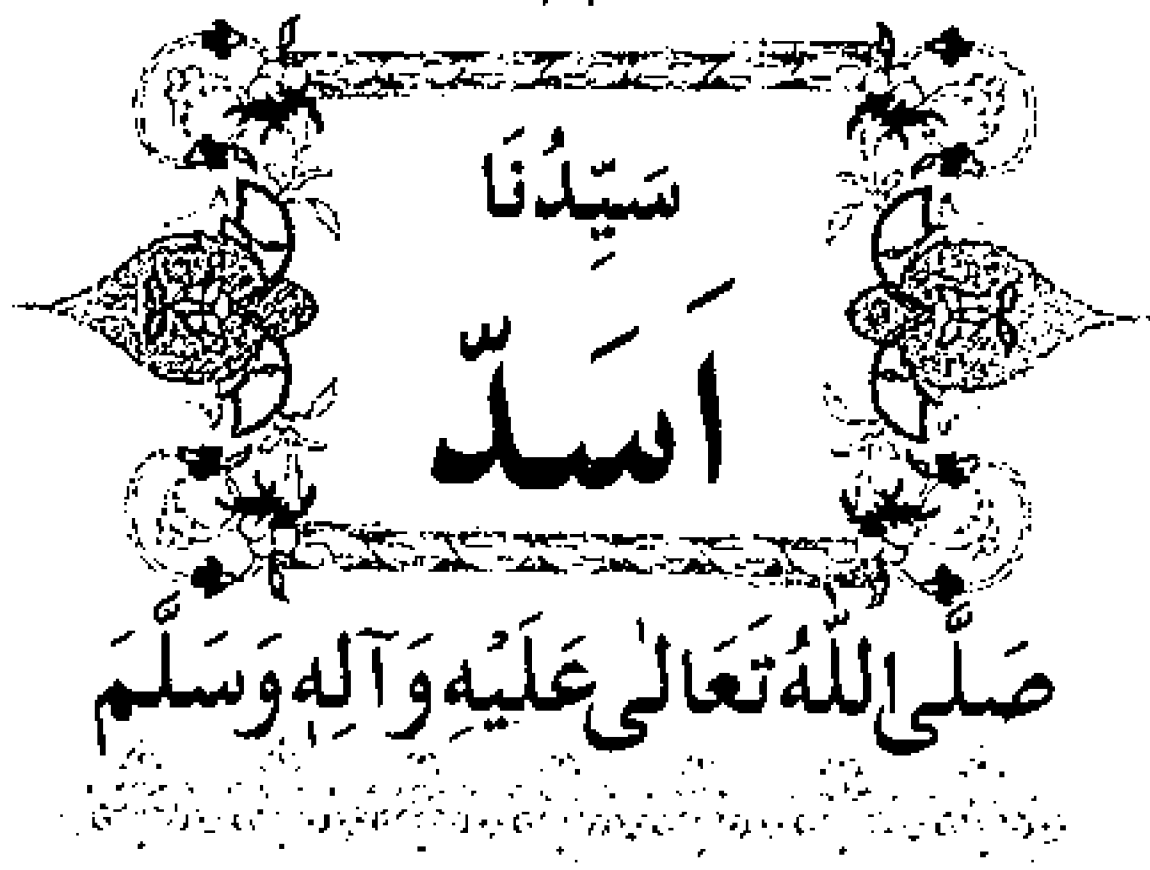 سَيِّدُنَا
اَسَدّ
صَلَّى اللّٰهُ تَعَالٰى عَلَيْهِ وَآلِهٖ وَسَلَّمَ